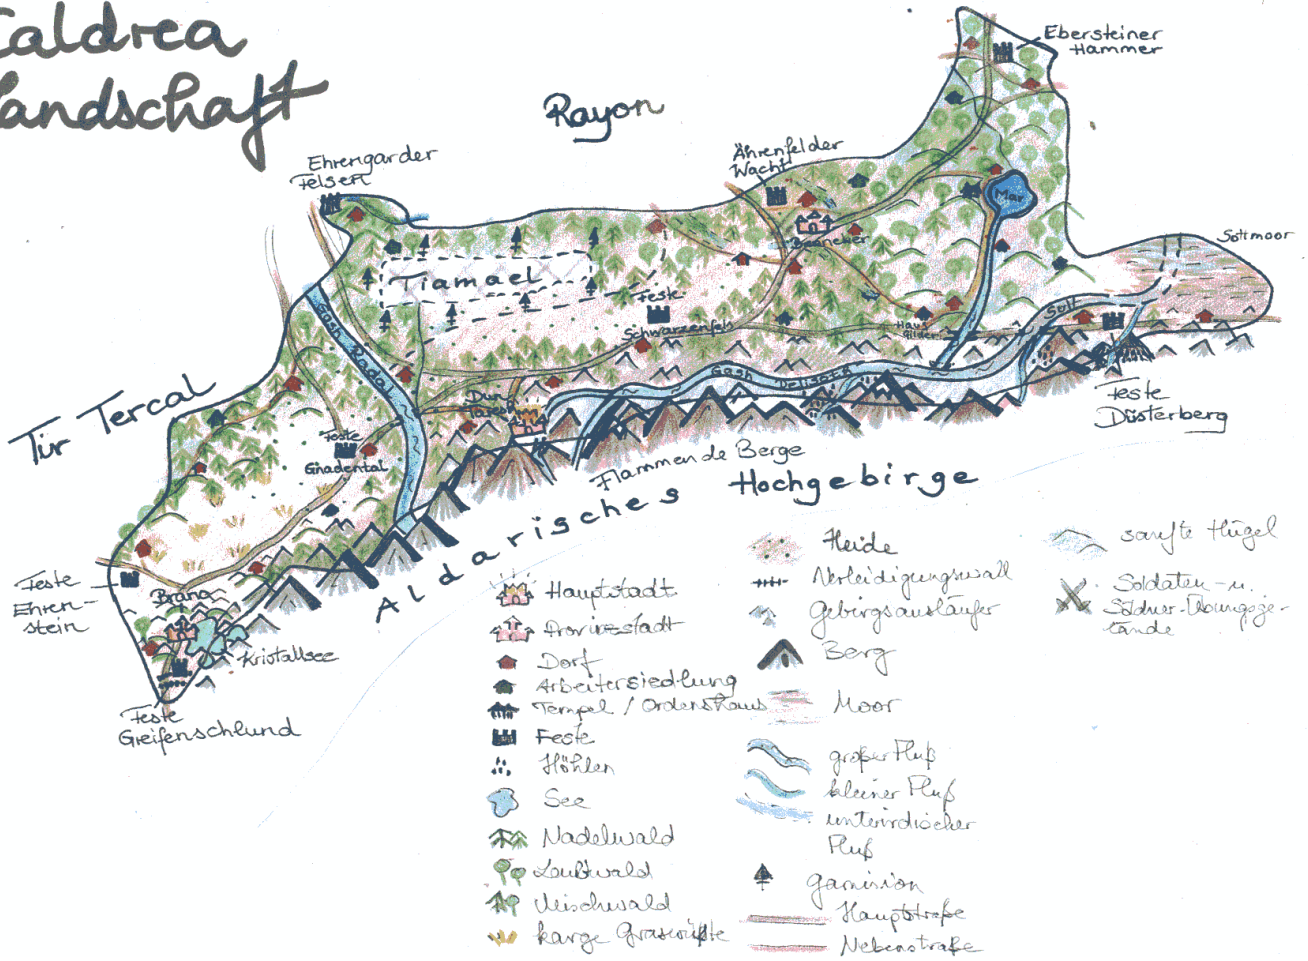 Caldrea
Landschaft
Rayon
Ebersteiner
Hammer
Ehrengarder
Felsen
Ährenfelder
Wacht
Mar
Sottmoor
Tiamael
Feste
Schwarzenfels
Haus
Sott
Gash
Gash
Dun
Tür Tercal
Feste
Gnadental
Feste
Düsterberg
Flammende Berge
Aldarisches Hochgebirge
Feste
Ehren-
stein
Brana
Kristallsee
Feste
Greifenschlund
Hauptstadt
Provinzstadt
Dorf
Arbeitersiedlung
Tempel / Ordenshaus
Feste
Höhlen
See
Nadelwald
Laubwald
Mischwald
karge Graswüste
Heide
Verteidigungswall
Gebirgsausläufer
Berg
Moor
großer Fluß
kleiner Fluß
unterirdischer
Fluß
Garnision
Hauptstraße
Nebenstraße
sanfte Hügel
Soldaten- u.
Söldner-Übungsge-
lände